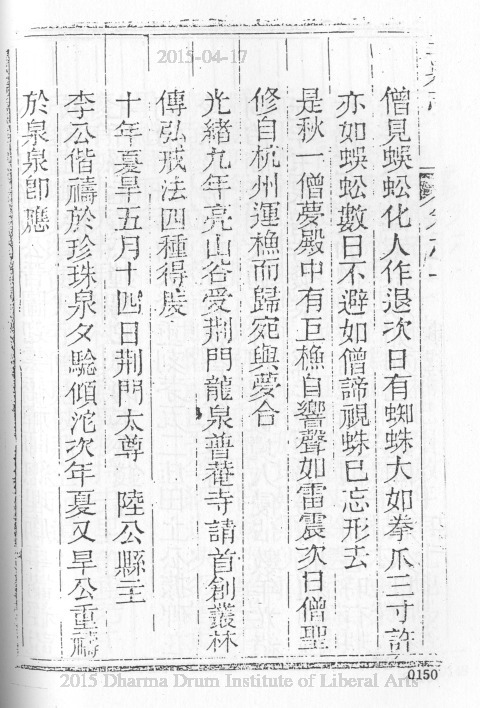 2015-04-17
僧見蜈蚣化人作退次日有蜘蛛大如拳爪三寸許
亦如蜈蚣數日不避如僧諦視蛛已忘形去
是秋一僧夢殿中有巨樵自響聲如雷震次日僧聖
修自杭州運樵而歸宛與夢合
光緒九年亮山谷受荆門龍泉普菴寺請首創叢林
傳弘戒法四種得度
十年夏旱五月十四日荆門太尊 陸公縣主
李公偕禱於珍珠泉夕驗傾沱次年夏又旱公重禱
於泉泉卽應
0150
2015 Dharma Drum Institute of Liberal Arts